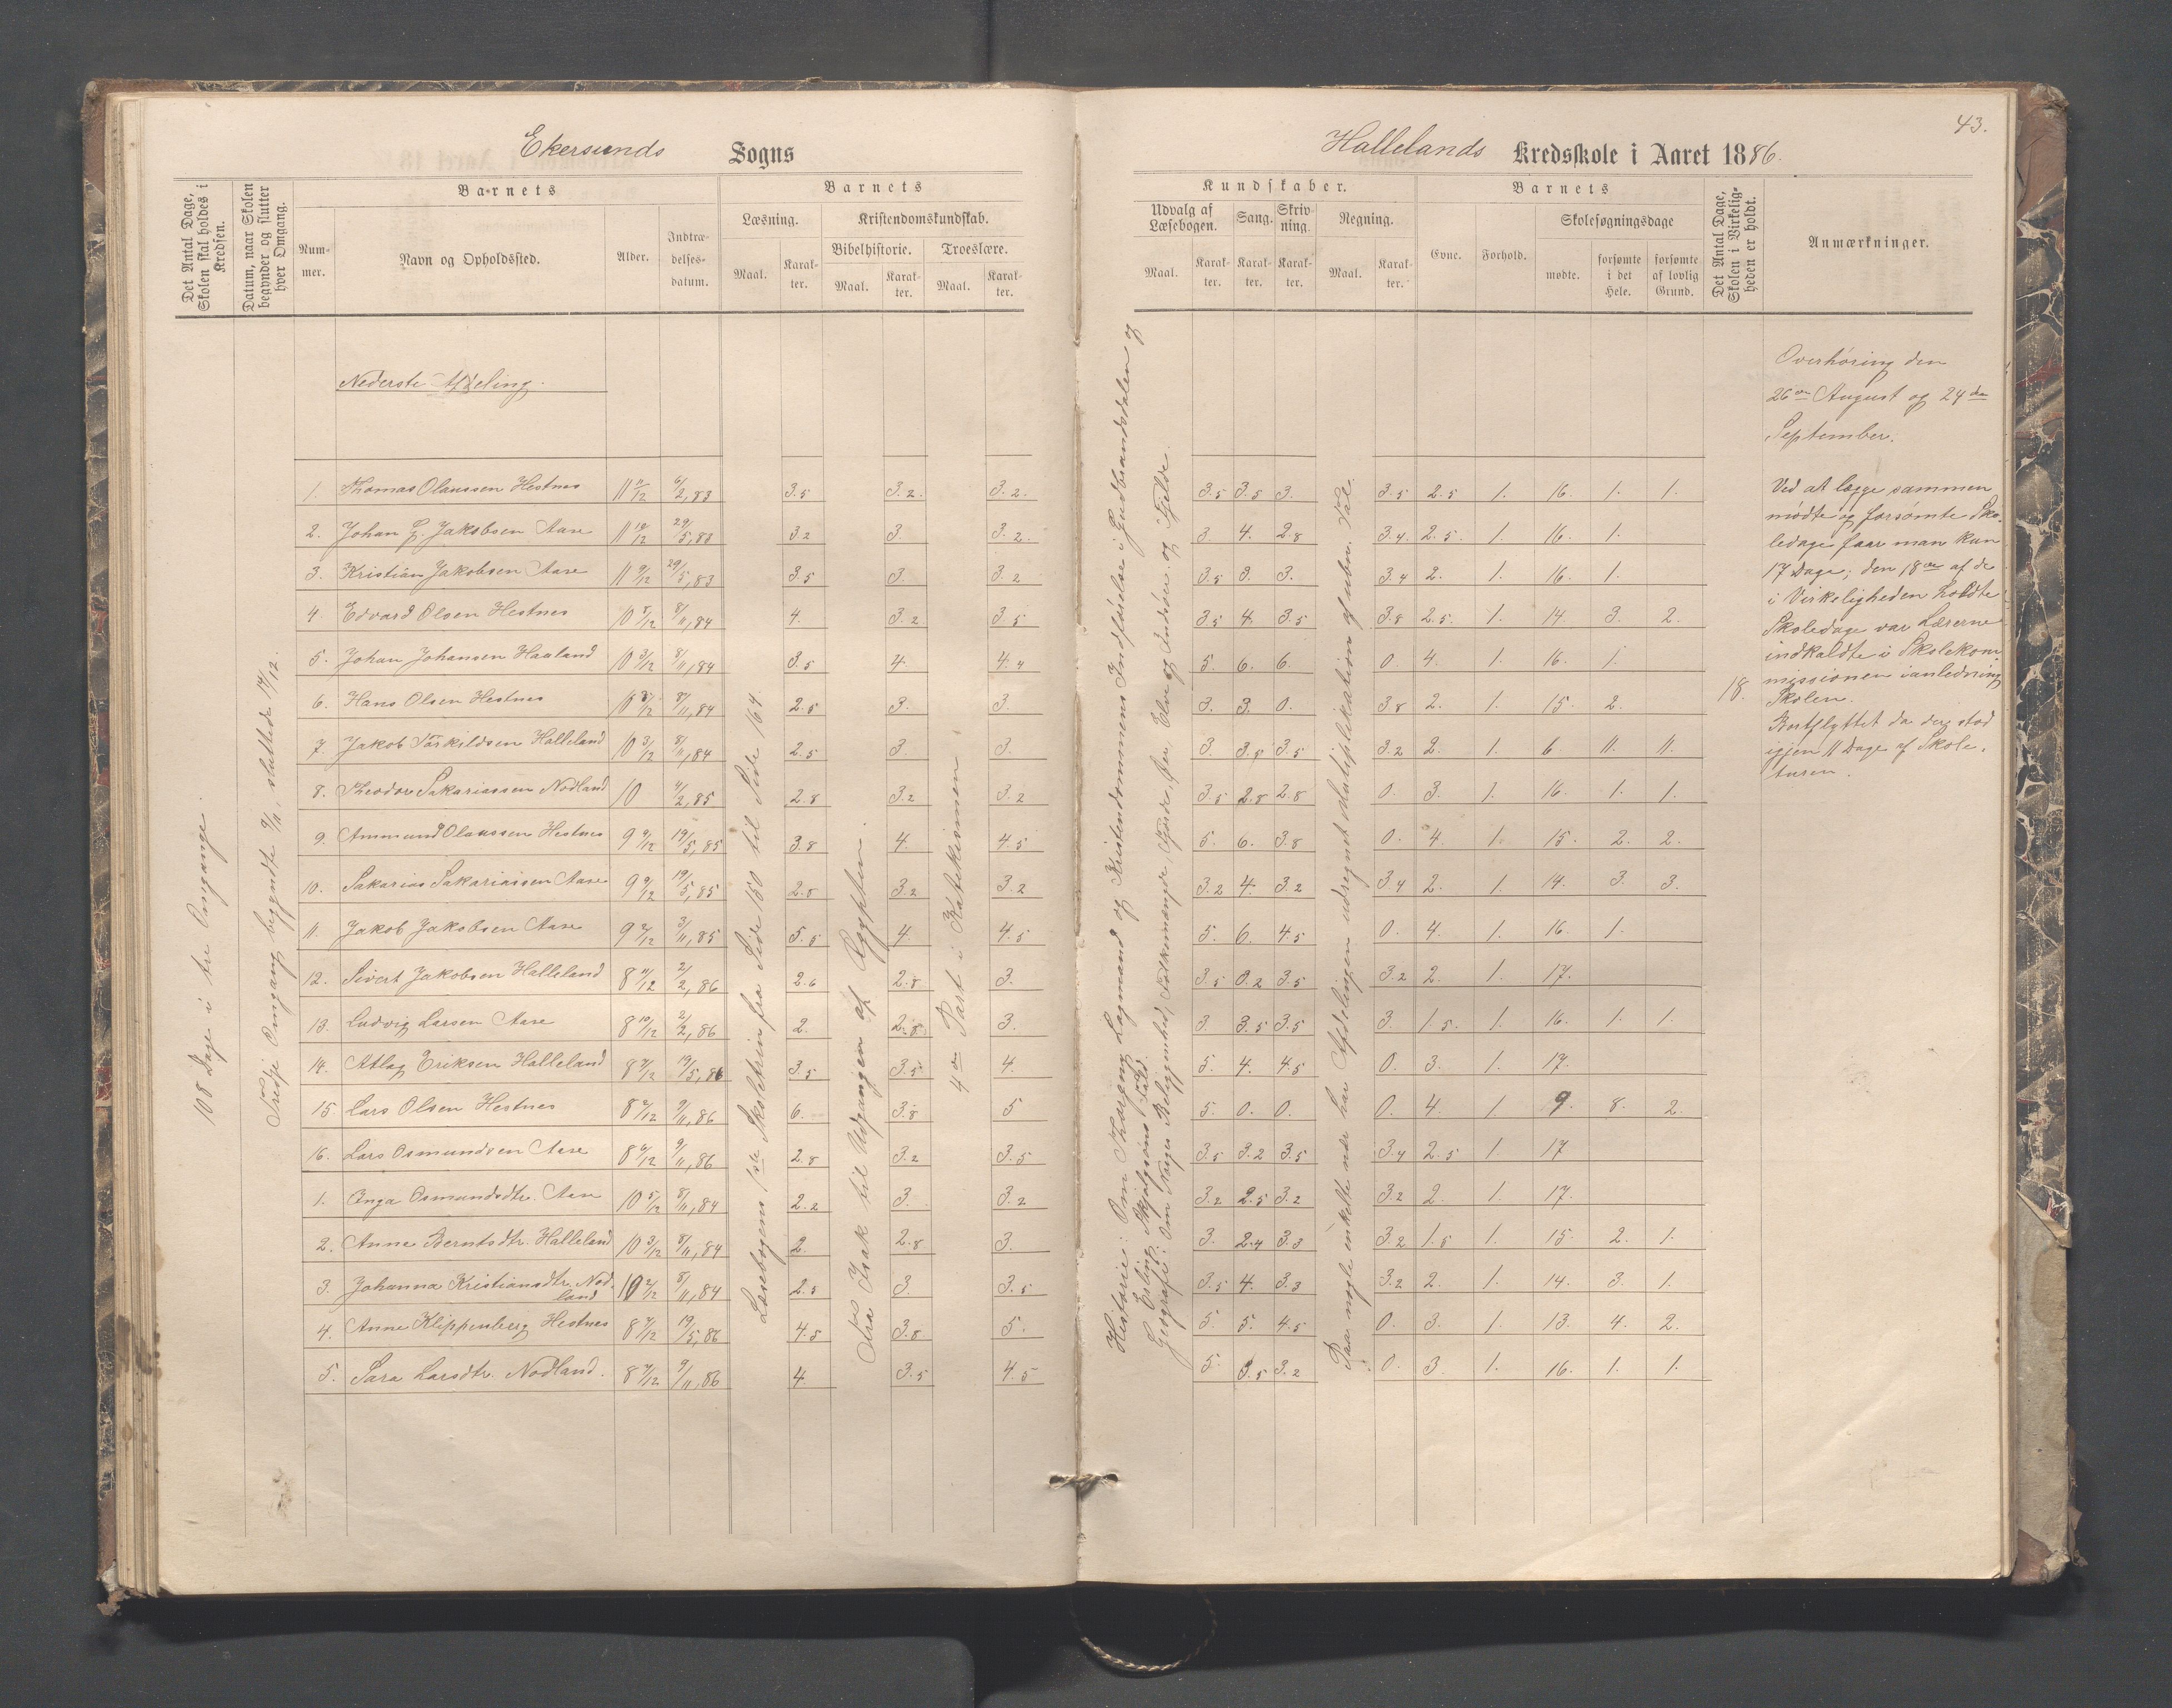 Ekersunds Sogns
Det Antal Dage, Skolen skal holdes i Kredsen.
Datum, naar Skolen begynder og slutter hver Omgang.
Barnets
Nummer.
Navn og Opholdssted.
Alder.
Indtrædelsesdatum.
Barnets
Læsning.
Maal.
Karakter.
Kristendomskundskab.
Bibelhistorie.
Maal.
Karakter.
Troeslære.
Maal.
Karakter.
108 Dage i tre Omgange.
Tredje Omgang begyndte 9/11, sluttede 17/12.
Nederste Afdeling.
Læsebogens 1ste Skoletrin fra Side 150 til Side 164.
Fra Isak til Udgangen af Ægypten.
4de Part i Katekismen
1. Thomas Olaussen Hestnes 11 11/12 6/2, 83 3.5 3.2. 3.2.
2. Johan L. Jakobsen Aase 11 10/12 29/5, 83 3.2 3. 3.2.
3. Kristian Jakobsen Aase 11 9/12 29/5, 83 3.5 3. 3.2
4. Edvard Olsen Hestnes 10 5/12 8/11, 84 4. 3.2 3.5
5. Johan Johansen Haaland 10 3/12 8/11, 84 3.5 4. 4.4
6. Hans Olsen Hestnes 10 3/12 8/11, 84 2.5 3. 3.
7. Jakob Tarkildsen Halleland 10 3/12 8/11, 84 2.5 3. 3.
8. Theodor Sakariassen Nodland 10 4/2, 85 2.8 3.2 3.2
9. Ammund Olaussen Hestnes 9 9/12 19/5, 85 3.8 4. 4.5
10. Sakarias Sakariassen Aase 9 9/12 19/5, 85 2.8 3.2 3.2
11. Jakob Jakobsen Aase 9 2/12 3/11, 85 5.5 4. 4.5
12. Sivert Jakobsen Halleland 8 11/12 2/2, 86 2.6 2.8 3.
13. Ludvig Larsen Aase 8 10/12 2/2, 86 2. 2.8 3.
14. Atlag Eriksen Halleland 8 9/12 19/5, 86 3.5 3.5 4.
15 Lars Olsen Hestnes 8 2/12 9/11, 86 6. 3.8 5
16. Lars Osmundsen Aase 8 2/12 9/11, 86 2.8 3.2 3.5
1. Inga Osmundsdtr. Aase 10 5/12 8/11, 84 2.2 3. 3.2
2. Anne Berntsdtr. Halleland 10 3/12 8/11, 84 2. 2.8 3.
3. Johanna Kristiansdtr. Nodland 10 2/12 8/11, 84 2.5 3. 3.5
4. Anne Klippenberg Hestnes 8 7/12 19/5, 86 4.5 3.8 5.
5. Sara Larsdtr. Nodland. 8 7/12 9/11, 86 4. 3.5 4.5
43.
Hallelands Kredsskole i Aaret 1886.
Kundskaber.
Udvalg af Læsebogen.
Maal.
Karakter.
Sang.
Karakter.
Skrivning.
Karakter.
Regning.
Maal.
Karakter.
Barnets
Evne.
Forhold.
Skolesøgningsdage
mødte.
forsømte i det Hele.
forsømte af lovlig Grund.
Det Antal Dage, Skolen i Virkeligheden er holdt.
Anmærkninger.
Historie: Om Thorgny Lagmand og Kristendommens Indførelse i Gudbrandsdalen og
Erling Skjalgsøns Fald.
Geografi: Om Norges Beliggenhed, Folkemængde, Fjorde, Øer, Elve og Indsøer. og Fjelde.
Paa nogle enkelte nær har Afdelingen udregnet Multiplikation af ubn. Tal.
3.5 3.5 3. 3.5 2.5 1. 16. 1. 1.
3. 4. 2.8 3.4. 2.5. 1. 16. 1.
3.5 3. 3. 3.4 2. 1. 16. 1.
3.5 4. 3.5 3.8 2.5. 1. 14. 3. 2.
5. 6. 6. 0. 4. 1. 16. 1.
3. 3. 0. 3.8 2. 1. 15. 2.
3. 3.8 3.5 3.2 2. 1. 6. 11. 11.
3.5 2.8 2.8 0. 3. 1. 16. 1. 1.
5. 6. 3.8 0. 4. 1. 15. 2. 2.
3.2 4. 3.2 3.4 2. 1. 14. 3. 3.
5. 6. 4.5 0. 4. 1. 16. 1.
3.5 0.2 3.5 3.2 2. 1. 17.
3. 3.5 3.5 3. 1.5. 1. 16. 1. 1.
5. 4. 4.5 0. 3. 1. 17.
5. 0. 0. 0. 4. 1. 9. 8. 2.
3.5 3.2 3.5 3.4 2.5 1. 17
3.2 2.5 3.2 3.2 2. 1. 17.
3. 2.4 3.3 3.2 1.5 1. 15. 2. 1.
3.5 4. 3.3 3.2 2. 1. 14. 3. 1.
5. 5. 4.5 0. 3. 1. 13. 4. 2.
5. 3.5 3.2 0. 3 1. 16. 1. 1.
18.
Overhøring den
26de August og 24de
September.
Ved at lægge sammen
mødte og forsømte Sko-
ledage faar man kun
17 Dage; den 18de af de
i Virkeligheden holdte
Skoledage var Lærerne
indkaldte i Skolekom-
missionen i anledning
Skolen.
Bortflyttet da der stod
igjen 11 Dage af Skole-
turen.